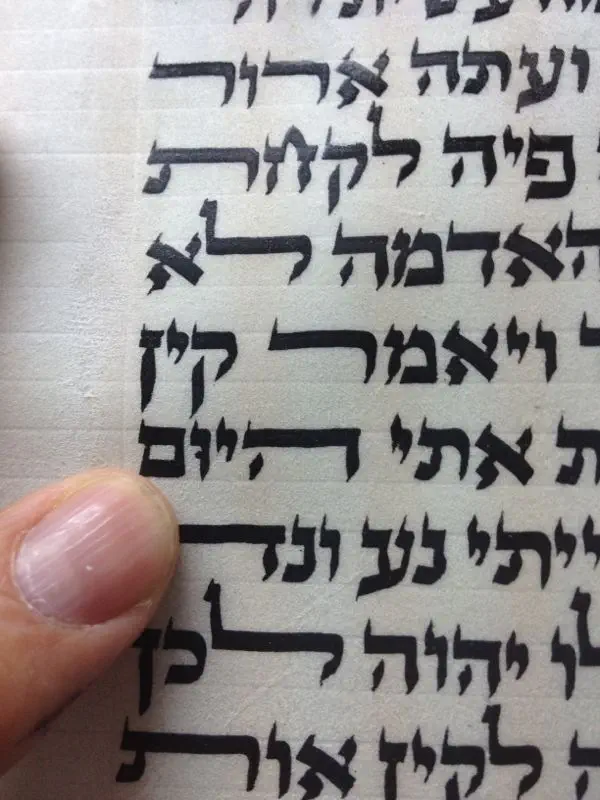 ועתה ארור
פיה לקחת
האדמה לא
ויאמר קין
ת אתי היום
ייתי נע ונד
לו יהוה לכן
ה לקין אות